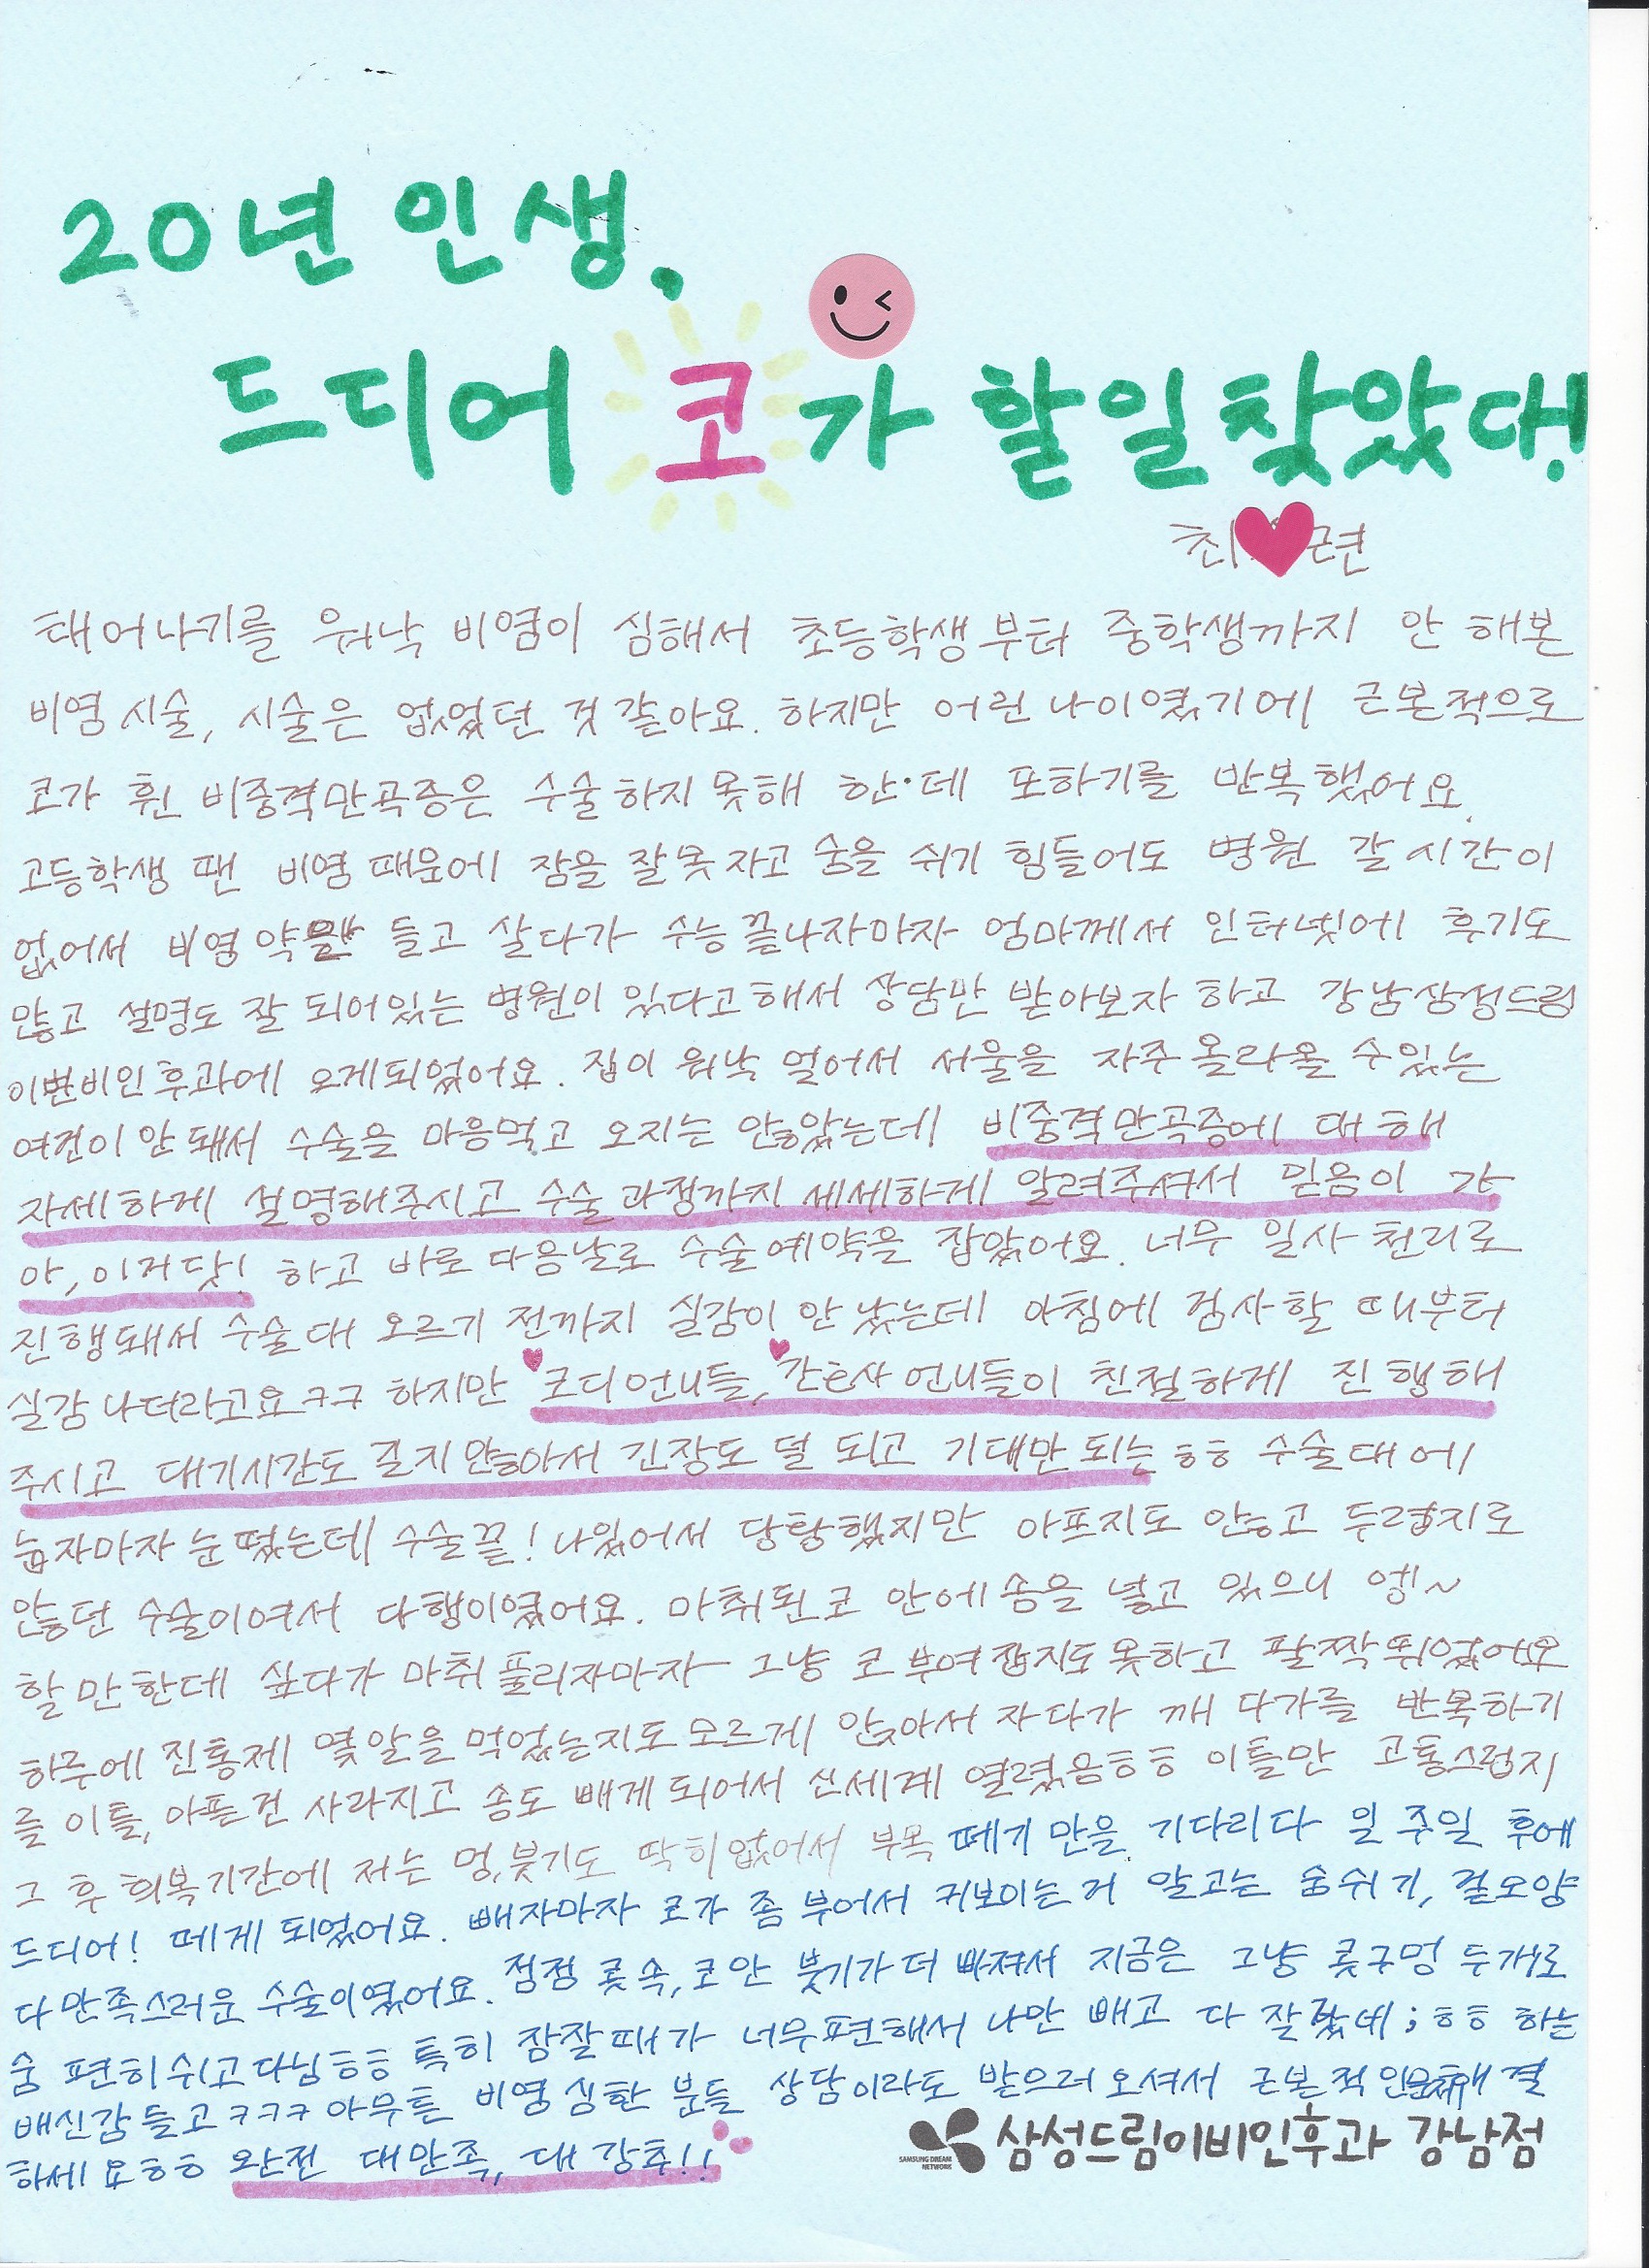 20년 인생,
드디어 코가 할일 찾았다!
최 근련
태어나기를 워낙 비염이 심해서 초등학생부터 중학생까지 안 해본
비염 시술, 시술은 없었던 것 같아요. 하지만 어린 나이였기에 근본적으로
코가 휜 비중격만곡증은 수술하지 못해 한·데 또하기를 반복했어요.
고등학생 땐 비염 때문에 잠을 잘 못 자고 숨을 쉬기 힘들어도 병원 갈 시간이
없어서 비염 약 들고 살다가 수능 끝나자마자 엄마께서 인터넷에 후기도
많고 설명도 잘 되어있는 병원이 있다고 해서 상담만 받아보자 하고 강남삼성드림
이번비인후과에 오게되었어요. 집이 워낙 멀어서 서울을 자주 올라올 수 있는
여건이 안 돼서 수술을 마음먹고 오지는 않았는데 비중격만곡증에 대해
자세하게 설명해주시고 수술 과정까지 세세하게 알려주셔서 믿음이 가
아, 이거닷! 하고 바로 다음날로 수술예약을 잡았어요. 너무 일사천리로
진행돼서 수술대 오르기 전까지 실감이 안 났는데 아침에 검사할 때부터
실감 나더라고요ㅋㅋ 하지만 코디언니들, 간호사 언니들이 친절하게 진행해
주시고 대기시간도 길지 않아서 긴장도 덜 되고 기대만 되는 ㅎㅎ 수술대에
눕자마자 눈 떴는데 수술끝! 나있어서 당황했지만 아프지도 않고 두렵지로
않던 수술이여서 다행이였어요. 마취된 코 안에 솜을 넣고 있으니 엥~
할만한데 싶다가 마취 풀리자마자 그냥 코 부여잡지도 못하고 팔짝 뛰었어요
하루에 진통제 몇알을 먹었는지도 모르게 앉아서 자다가 깨 다가를 반복하기
를 이틀, 아픈건 사라지고 솜도 빼게 되어서 신세계 열렸음ㅎㅎ 이틀만 고통스럽지
그 후 회복기간에 저는 멍, 붓기도 딱히없어서 부목 떼기 만을 기다리다 일주일 후에
드디어! 떼게 되었어요. 빼자마자 코가 좀 부어서 커보이는거 말고는 숨쉬기, 겉모양
다 만족스러운 수술이였어요. 점점 콧 속, 코안 붓기가 더 빠져서 지금은 그냥 콧구멍 두개로
숨 편히 쉬고다님ㅎㅎ 특히 잠잘때가 너무편해서 나만 빼고 다 잘 네; ㅎㅎ 하는
배신감 들고ㅋㅋㅋ 아무튼 비염 심한 분들 상담이라도 받으러 오셔서 근본적 인 해결
하세요ㅎㅎ 완전 대만족, 대 강추!!
SAMSUNG DREAM NETWORK 삼성드림이비인후과 강남점